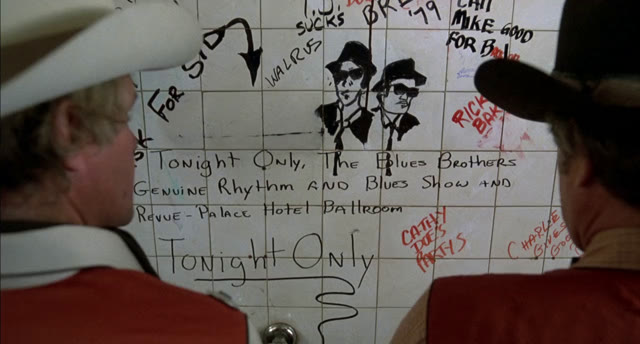 SUCKS
BRE '79
CALL
MIKE GOOD
FOR B
FOR SID
WALRUS
RICK
BAK
Tonight Only, The Blues Brothers
Genuine Rhythm AND Blues Show AND
Revue - Palace Hotel Ballroom
Tonight Only
CATHY
DOE'S
PARTYS
CHARLIE
GIVES
GOO